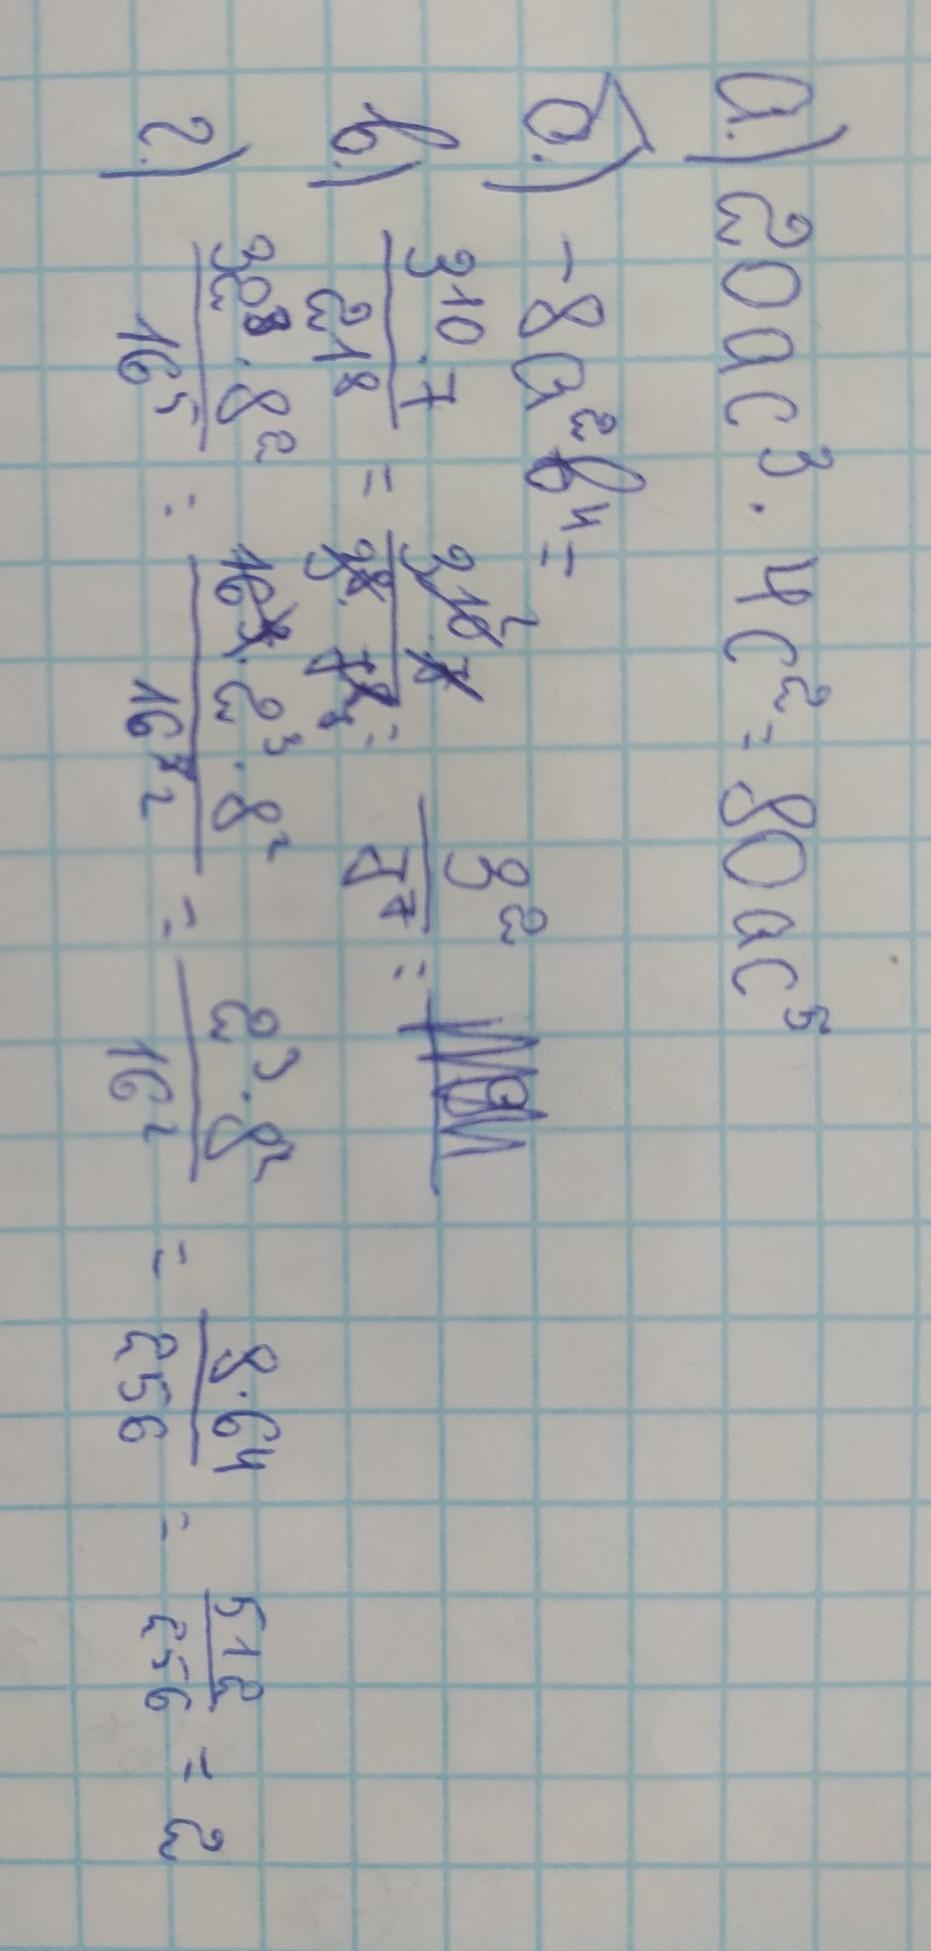 а.) 20ac³ · 4c² = 80ac⁵
б.) -8a²b⁴ =
в.) 3¹⁰·7 / 21⁸ = 3¹⁰·7 / 3⁸·7⁸ = 3² / 7⁷ =
г.) 32³·8² / 16⁵ = 16³·2³·8² / 16⁵ = 2³·8² / 16² = 8·64 / 256 = 512 / 256 = 2